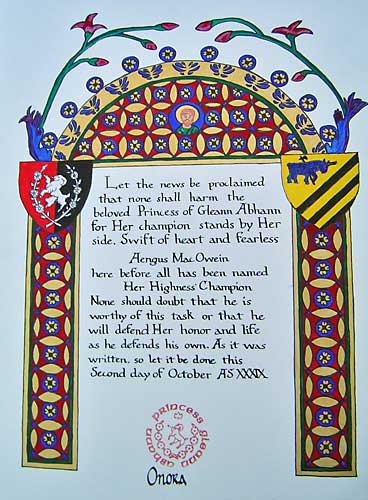 Let the news be proclaimed
that none shall harm the
beloved Princess of Gleann Abhann
for Her champion stands by Her
side, Swift of heart and fearless
Aengus MacOwein
here before all has been named
Her Highness' Champion
None should doubt that he is
worthy of this task or that he
will defend Her honor and life
as he defends his own. As it was
written, so let it be done this
Second day of October AS XXXIX
princess gleann abhann
Onora